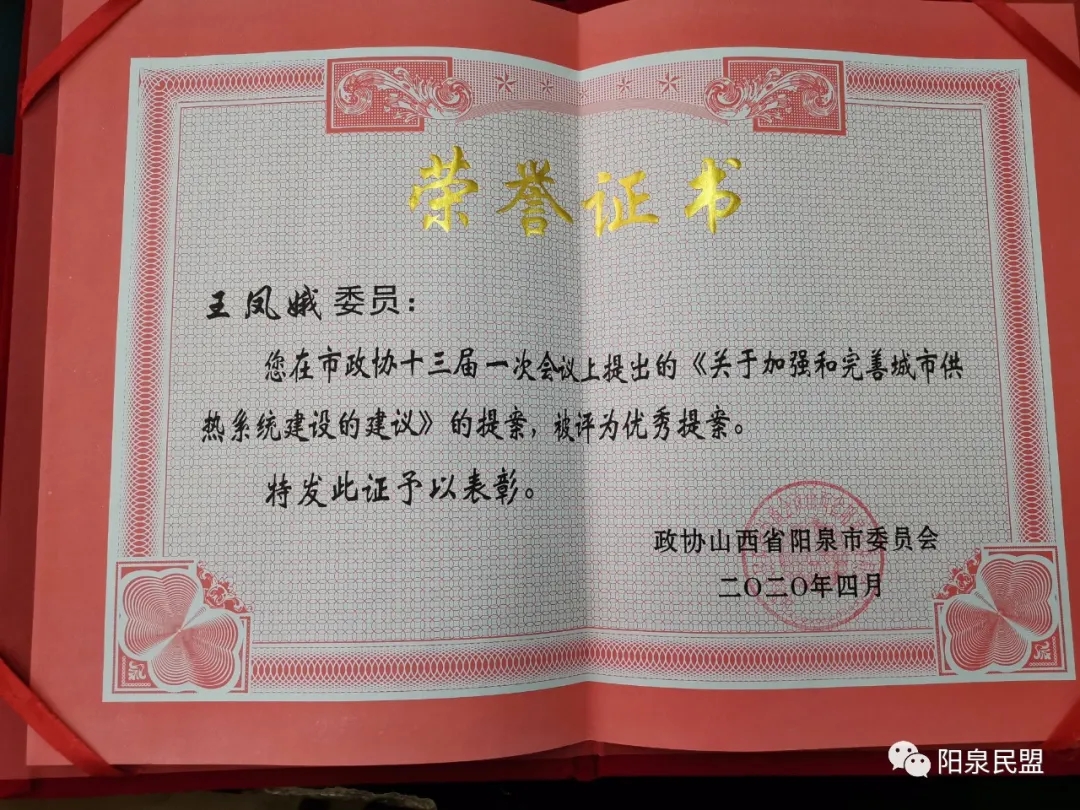 荣誉证书
王凤娥委员：
您在市政协十三届一次会议上提出的《关于加强和完善城市供
热系统建设的建议》的提案，被评为优秀提案。
特发此证予以表彰。
政协山西省阳泉市委员会
二〇二〇年四月
阳泉民盟